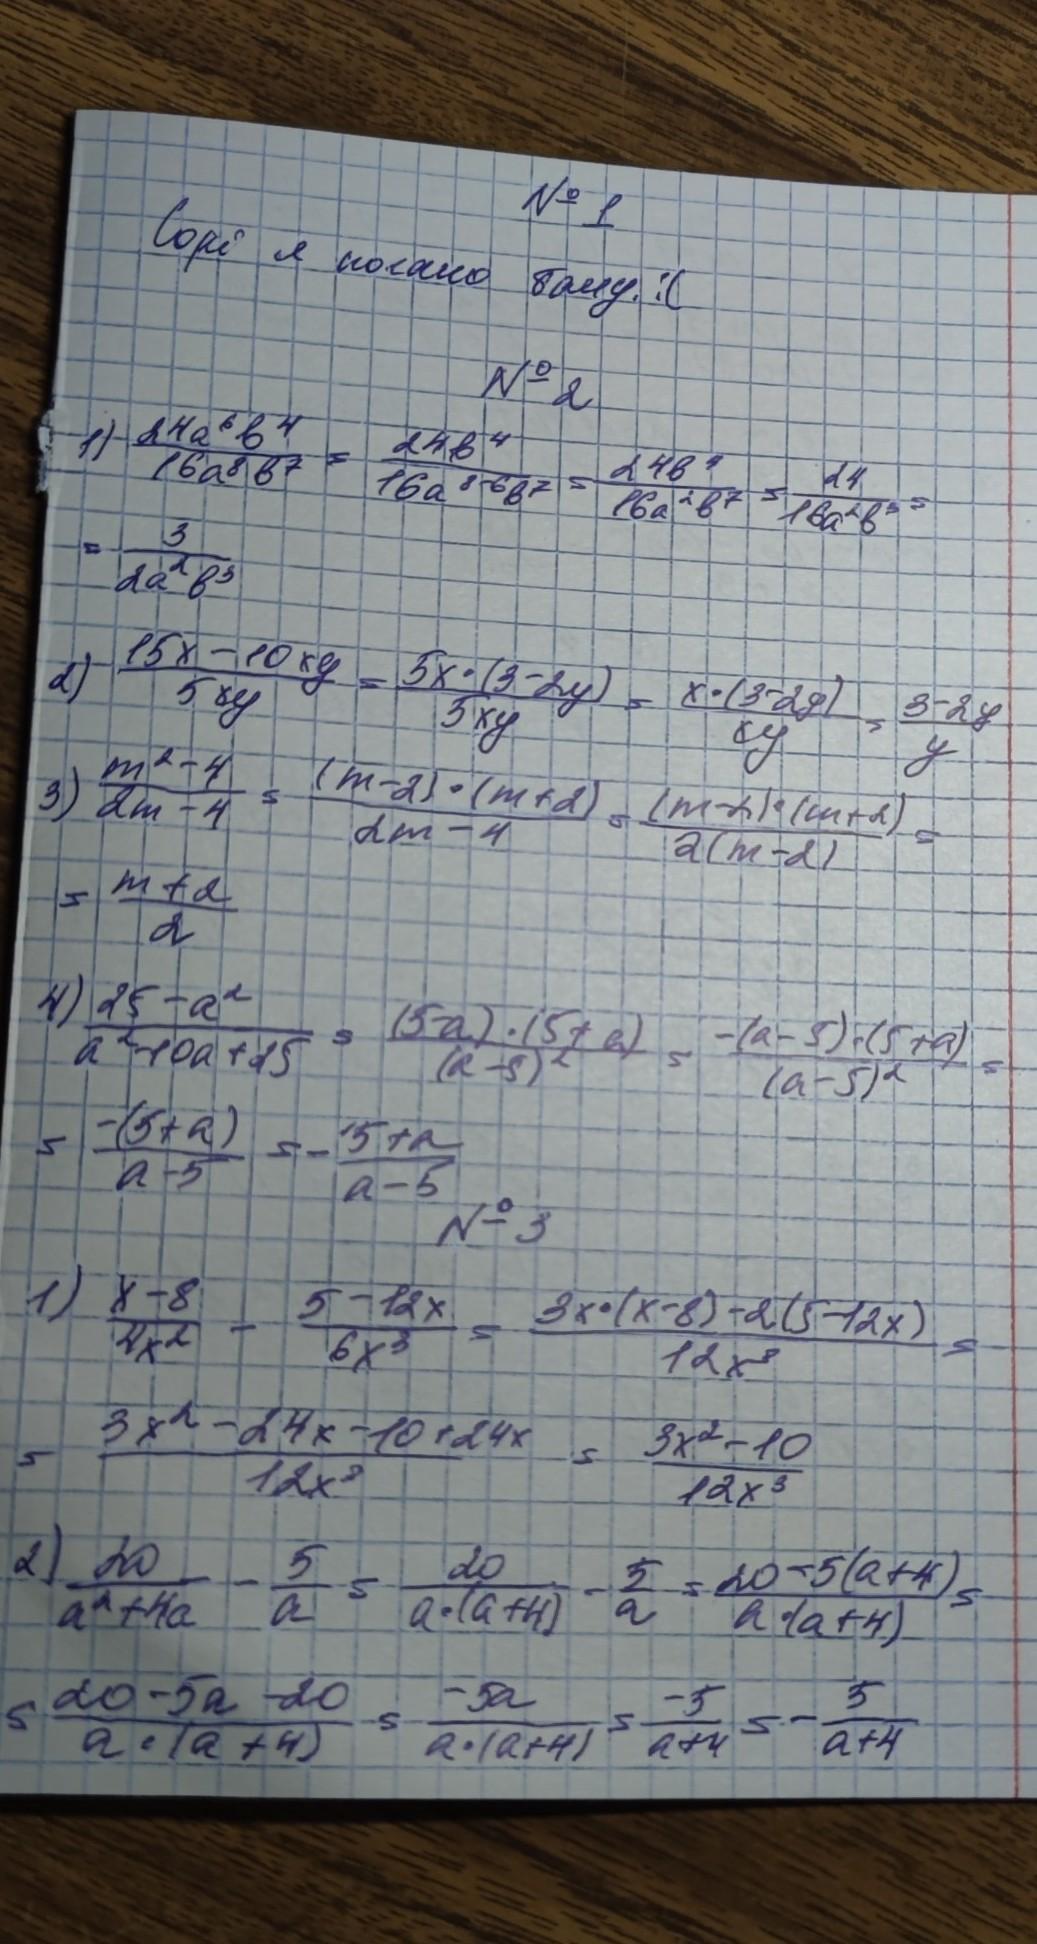 № 1
Сорі я погано бачу. :(
№ 2
1) 24a⁶b⁴/16a⁸b⁷ = 24b⁴/16a⁸⁻⁶b⁷ = 24b⁴/16a²b⁷ = 24/16a²b³ =
= 3/2a²b³
2) 15x - 10xy/5xy = 5x·(3-2y)/5xy = x·(3-2y)/xy = 3-2y/y
3) m²-4/2m-4 = (m-2)·(m+2)/2m-4 = (m-2)·(m+2)/2(m-2) =
= m+2/2
4) 25-a²/a²-10a+25 = (5-a)·(5+a)/(a-5)² = -(a-5)·(5+a)/(a-5)² =
= -(5+a)/a-5 = - 5+a/a-5
№ 3
1) x-8/4x² - 5-12x/6x³ = 3x·(x-8)-2(5-12x)/12x³ =
= 3x²-24x-10+24x/12x³ = 3x²-10/12x³
2) 20/a²+4a - 5/a = 20/a·(a+4) - 5/a = 20-5(a+4)/a·(a+4) =
= 20-5a-20/a·(a+4) = -5a/a·(a+4) = -5/a+4 = - 5/a+4